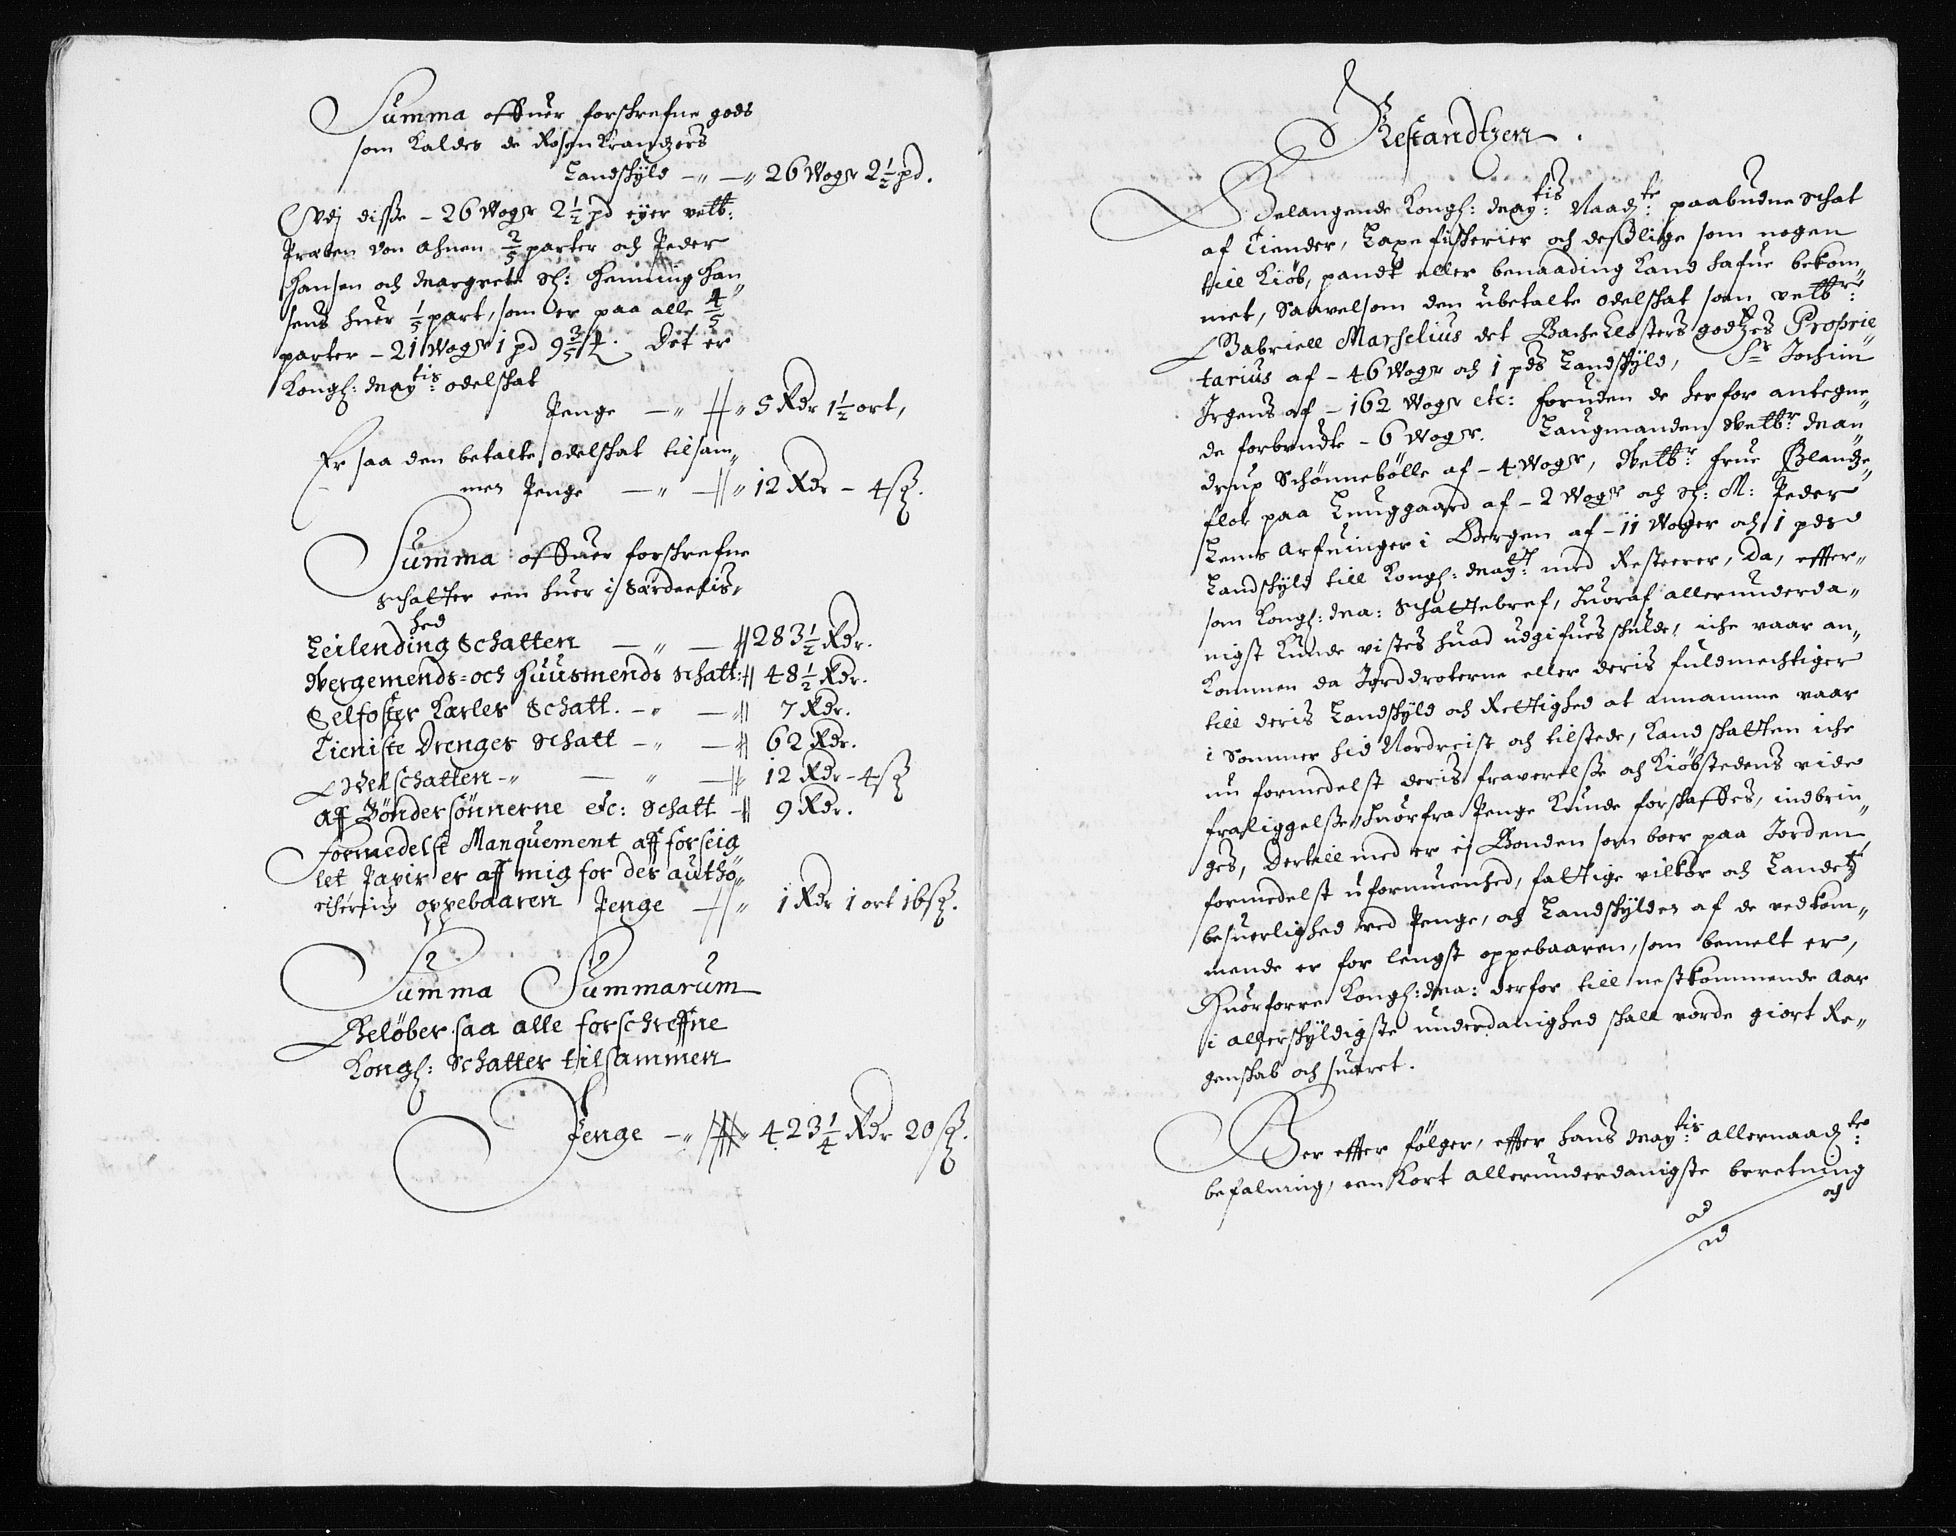 Summa offuer forskrefne gods
som kaldes de Rosenkrandzers
Landskyld — „ — „ 26 Woger 2½ pd.
Udj disse – 26 Woger 2½ pd eyer velb:
Preben von Ahnen 2/5 parter och Peder
Hansen och Margrete Sl: Henning Han„
sens huer 1/5 part, som er paa alle 4/5
parter – 21 Woger 1 pd 9 3/5 . Det er
Kongl: Maytis: odelskat
Penge — „ „ 5 Rdr 1½ ort,
Er saa den betalte odelskat tilsam„
men Penge — „ — „ 12 Rdr – 4 ß.
Summa offuer forskrefne
schatter een huer i Særdeelis„
hed
Leilending Schatten — „ — 283½ Rdr.
Bergemends= och Huusmends Schatt: 48½ Rdr.
Selfoster Karler Schatt. — „ — 7 Rdr.
Tieniste Drenges Schatt — „ — 62 Rdr.
Odelschatten – „ — „ — 12 Rdr – 4 ß
Aff Bönder sönnerne etc: Schatt – 9 Rdr.
Formedelst Manquement aff forseig
let Papir er aff mig for des authö„
risering oppebaaren Penge — „ 1 Rdr 1 ort 16 ß.
Summa Summarum
Belöber saa alle forschreffne
Kongl: Schatter tilsammen
Penge — „ 423¼ Rdr 20 ß.
Restandtzen.
Belangende Kongl: Maytis: Naadte: paabudne Schat
af Tiender, Laxefiskerier och desslige som nogen
till Kiöb, pandt eller benaading kand hafue bekom„
met, Saavelsom den ubetalte odelskat som velbr:
Gabriell Marselius det Backe Closters godtzes Proprie„
tarius af – 46 Woger och 1 pds Landskyld, Sr Jochim
Irgens af – 162 Woger etc: foruden de herfor antegne„
de forbrudte – 6 Woger. Laugmanden Welbr: Man„
drup Schönnebölle af – 4 Woger, Welbr: frue Blandze„
flor paa Lunggaard af – 2 Woger och Sl: M: Peder
Lems Arfuinger i Bergen af – 11 Woger och 1 pds
Landskyld till Kongl: Maytt: med Resterer, da, effter„
som Kongl: Ma: Schattebref, huoraf allerunderda„
nigst kunde vistes huad udgifues skulde, icke vaar an„
kommen da Jorddroterne eller deris fuldmechtiger
till deris Landskyld och Rettighed at annamme vaar
i Sommer hid Nordreist och tilstede, kand skatten icke
nu formedelst deris fraverelsse och Kiöbstedens vide
fraliggelsse, huorfra Penge kunde forskaffes, indbrin„
ges, Dertill med er ej Bonden som boer paa Jorden
formedelst uformuenhed, fattige vilkor och Landetz
besuerlighed ved Penge, och Landskylden af de vedkom„
mende er for lengst oppebaaren, som bemelt er,
Huorforre Kongl: Ma: derfor till nestkommende Aar
i allerskyldigste underdanighed skall vorde giort Re„
genskab och suaret.
Her effter fölger, effter hans Maytis: allernaadte:
befalning, een kort allerunderdanigste beretning
och